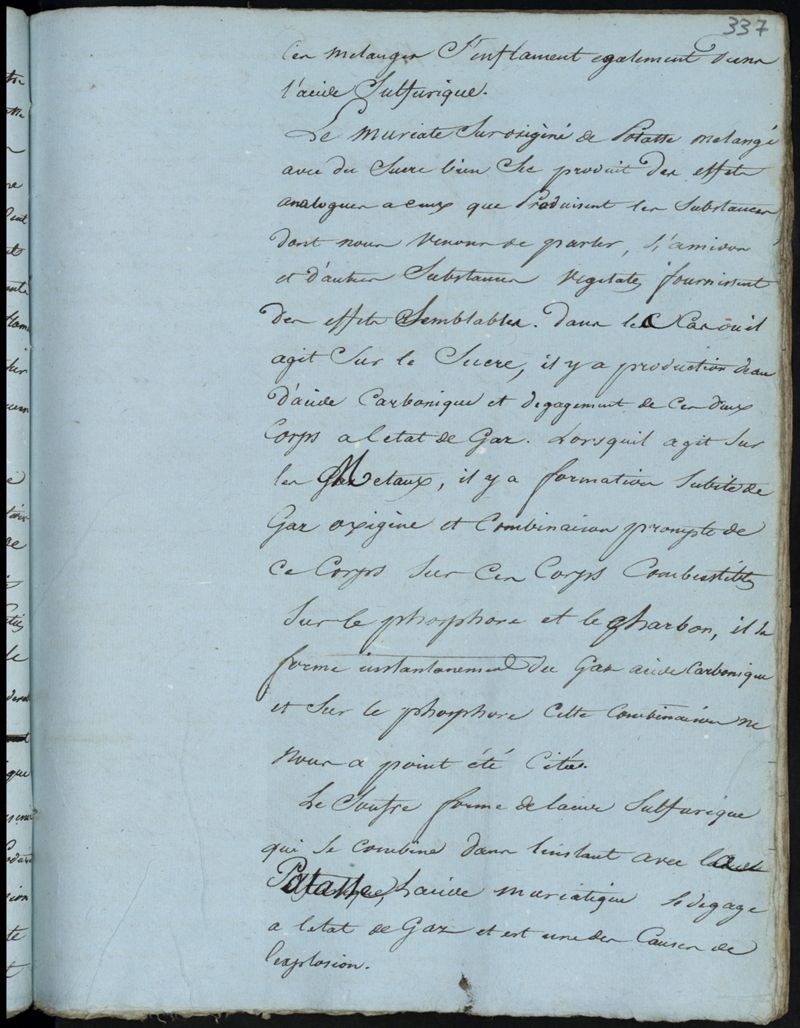 337
Ces melanges s'enflament egalement dans
l'acide Sulfurique.
Le Muriate Suroxigéné de Potasse melangé
avec du Sucre bien Sec produit des effets
analogues a ceux que Produisent les Substances
dont nous venons de parler, l'amidon
et d'autres Substances vegetales fournissent
des effets Semblables. dans le Cas où il
agit Sur le Sucre, il y a production d'eau
d'acide Carbonique et degagement de Ces deux
Corps a letat de Gaz. Lorsquil agit Sur
les Metaux, il y a formation Subite de
Gaz oxigène et Combinaison prompte de
Ce Corps Sur Ces Corps Combustibles
Sur le phosphore et le Charbon, il se
forme instantanement du Gaz acide Carbonique
et Sur le phosphore Cette Combinaison ne
nous a point été Citée.
Le Soufre forme de lacide Sulfurique
qui se combine dans linstant avec la
Potasse, Lacide muriatique se degage
a letat de Gaz et est une des Causes de
l'explosion.